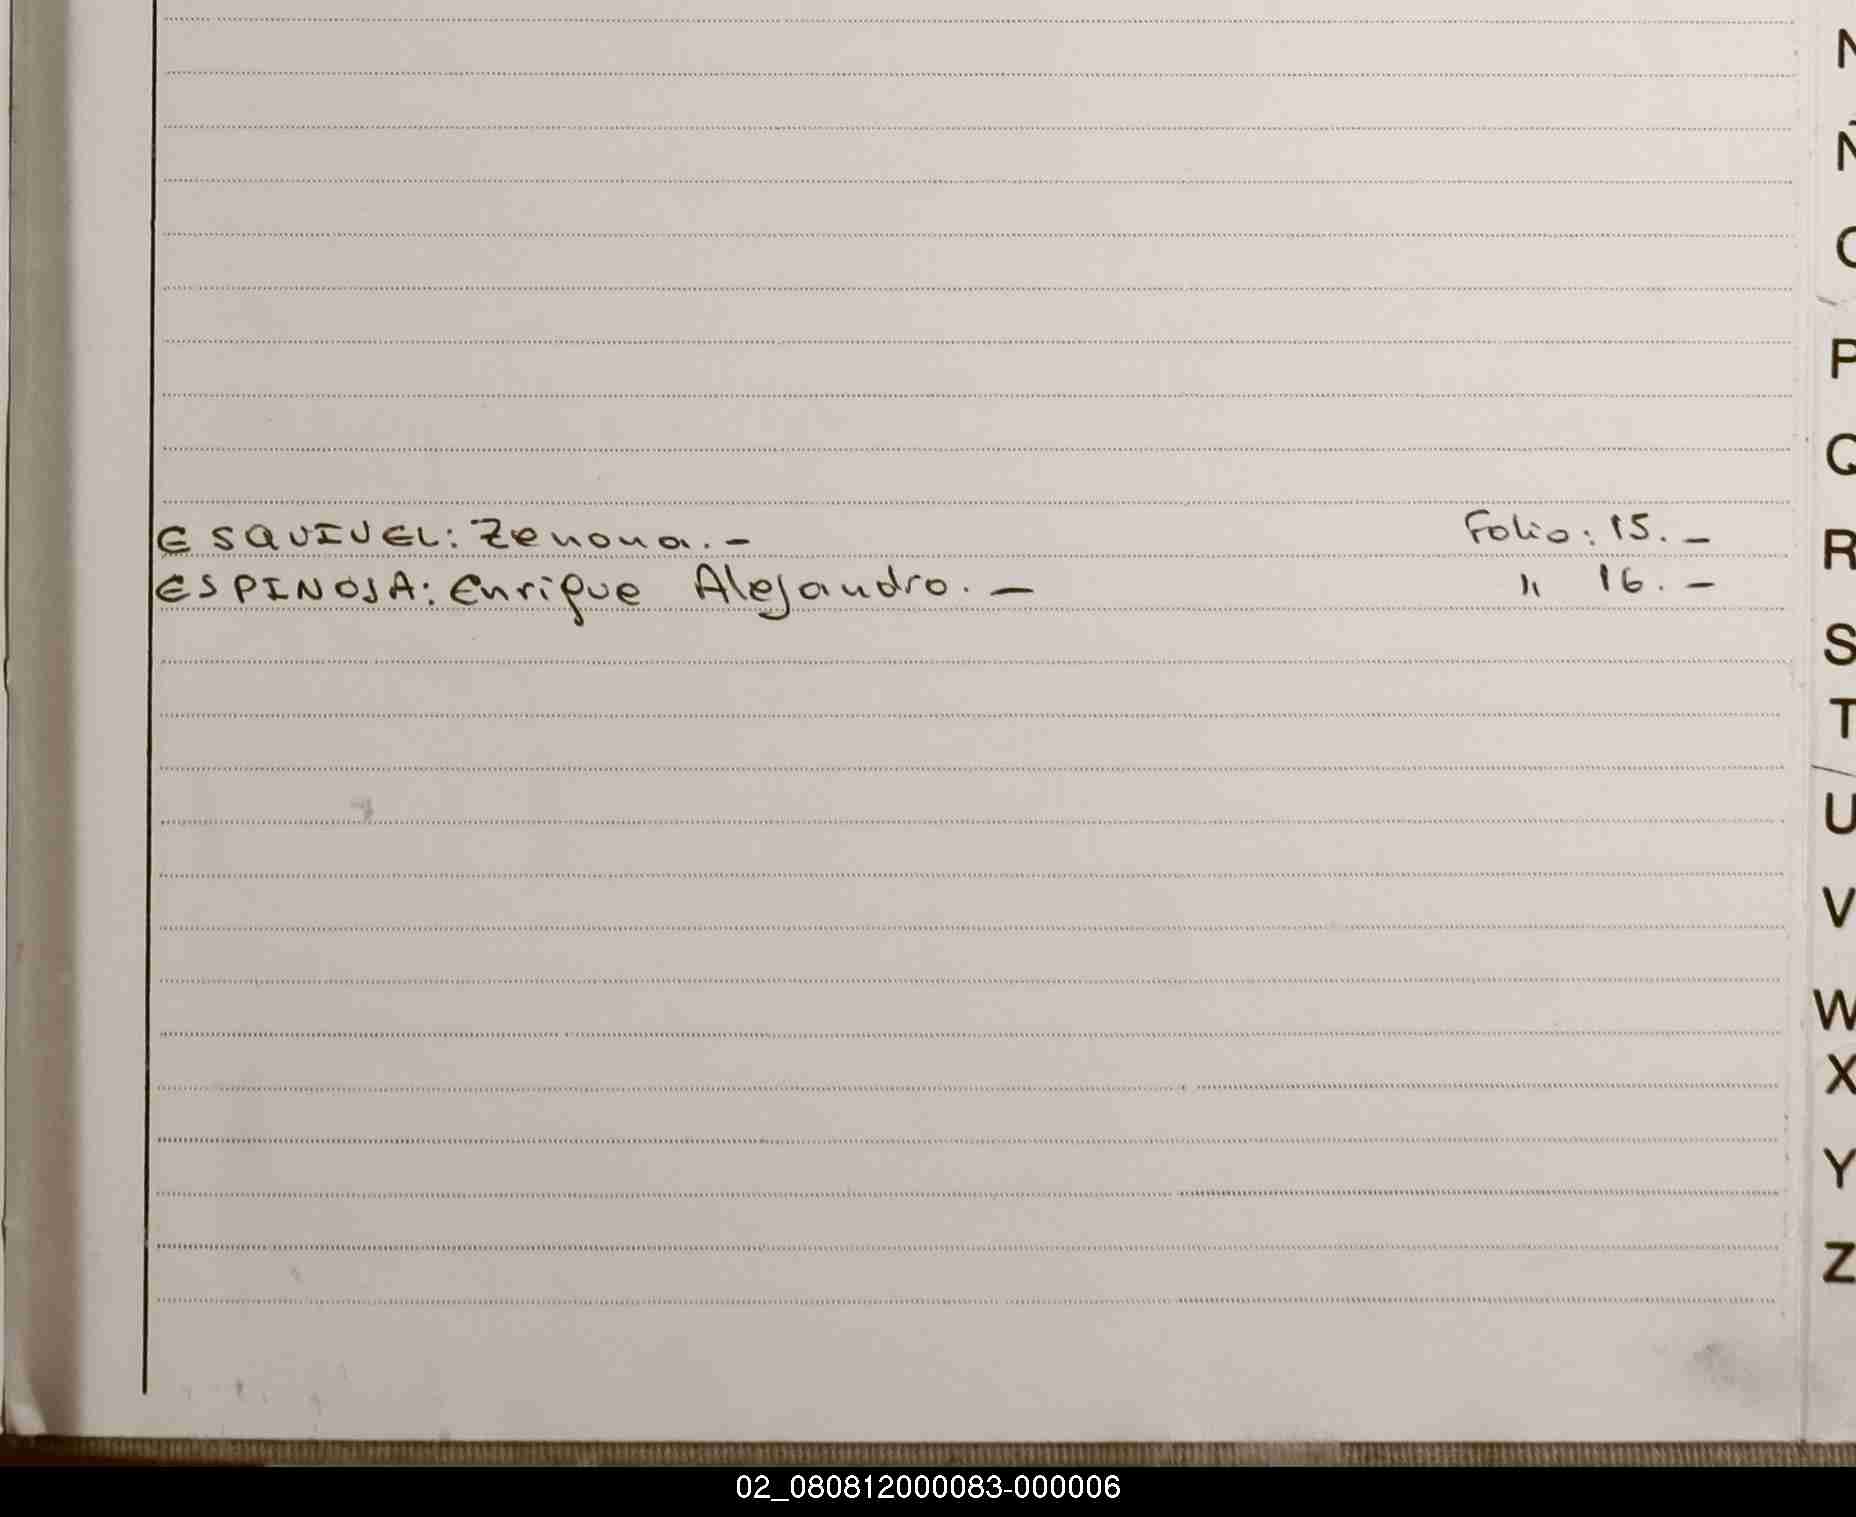 N
Ñ
O
P
Q
ESQUIVEL: Zenona. - Folio: 15. -
R
ESPINOSA: Enrique Alejandro. - " 16. -
S
T
U
V
W
X
Y
Z
02_080812000083-000006